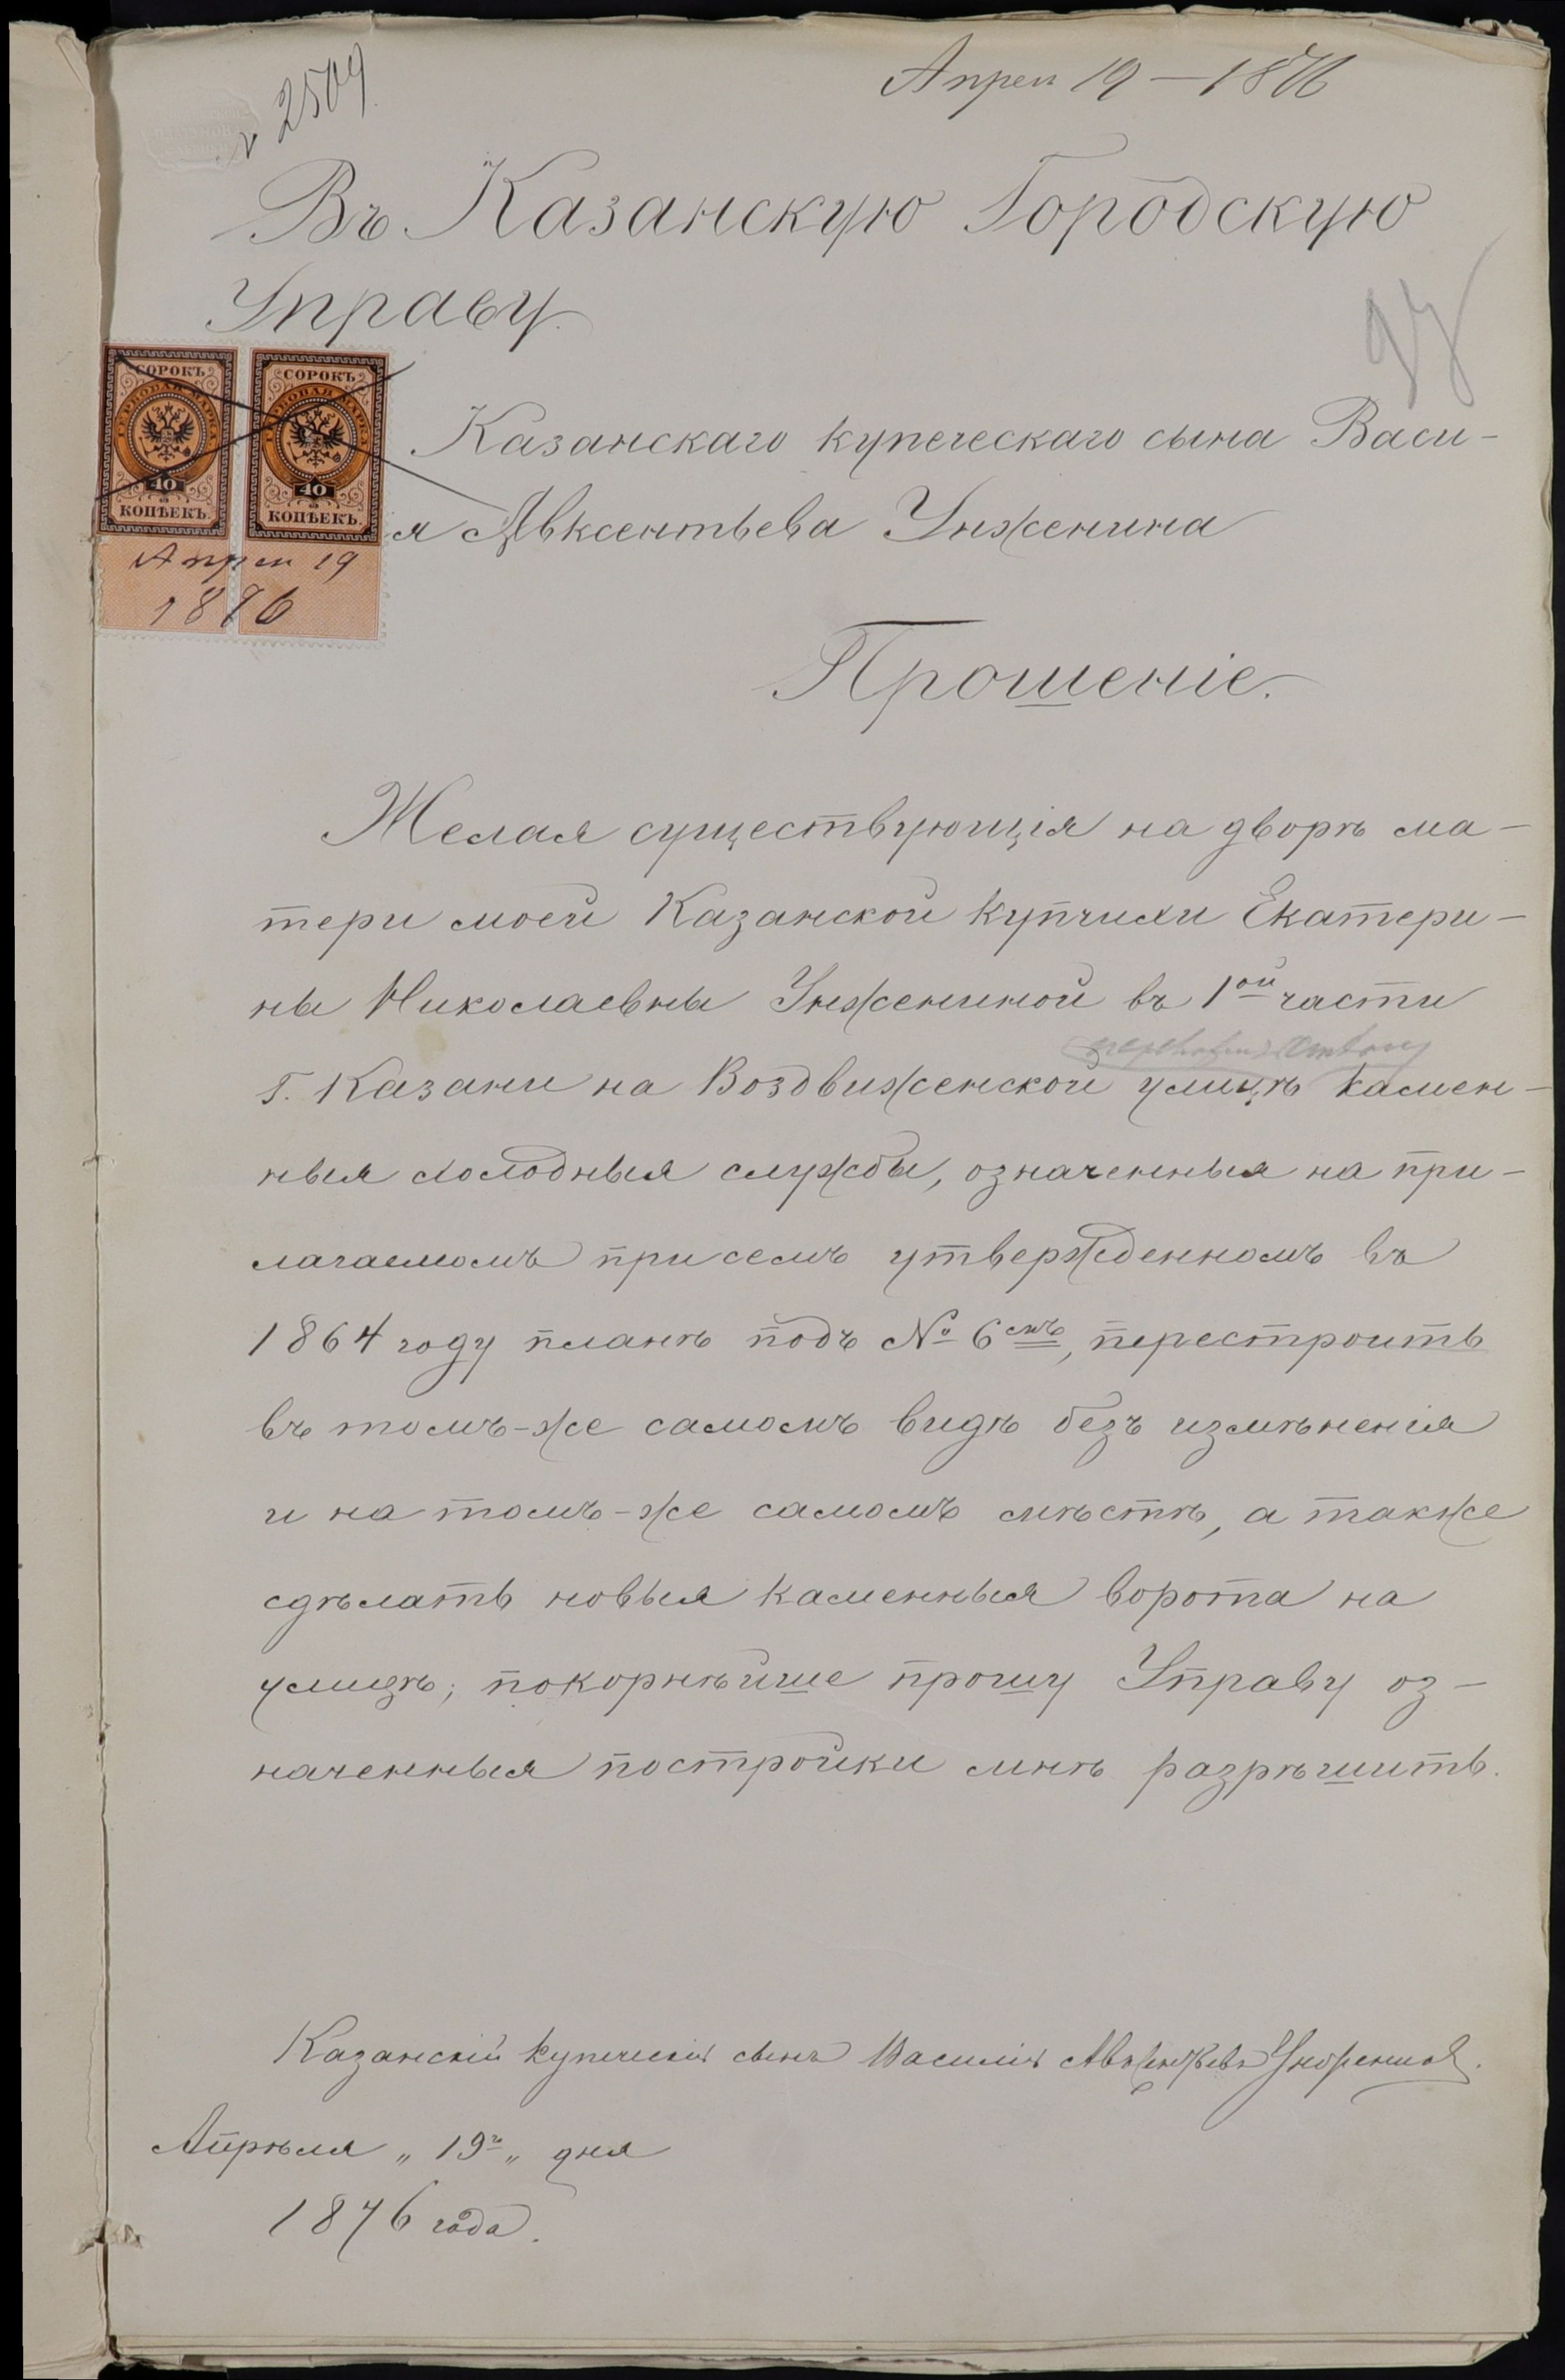 № 2509
Апрел 19 – 1876
Въ Казанскую Городскую
Управу
СОРОКЪ
ГЕРБОВАЯ МАРКА
40
КОПѢЕКЪ.
СОРОКЪ
ГЕРБОВАЯ МАРКА
40
КОПѢЕКЪ.
Апрел 19
1876
Казанскаго купеческаго сына Васи-
я Авксентьева Унженина
Прошеніе.
Желая существующія на дворѣ ма-
тери моей Казанской купчихи Екатери-
ны Николаевны Унжениной въ 1ой части
г. Казани на Воздвиженской улицѣ камен-
ныя холодныя службы, означенныя на при-
лагаемомъ при семъ утвержденномъ въ
1864 году планѣ подъ № 6мъ, перестроить
въ томъ-же самомъ видѣ безъ измѣненія
и на томъ-же самомъ мѣстѣ, а также
сдѣлать новыя каменныя ворота на
улицѣ; покорнѣйше прошу Управу оз-
наченныя постройки мнѣ разрѣшить.
Казанскій купеческій сынъ Василій Авксентьевъ Унженинъ.
Апрѣля „19го„ дня
1876 года.